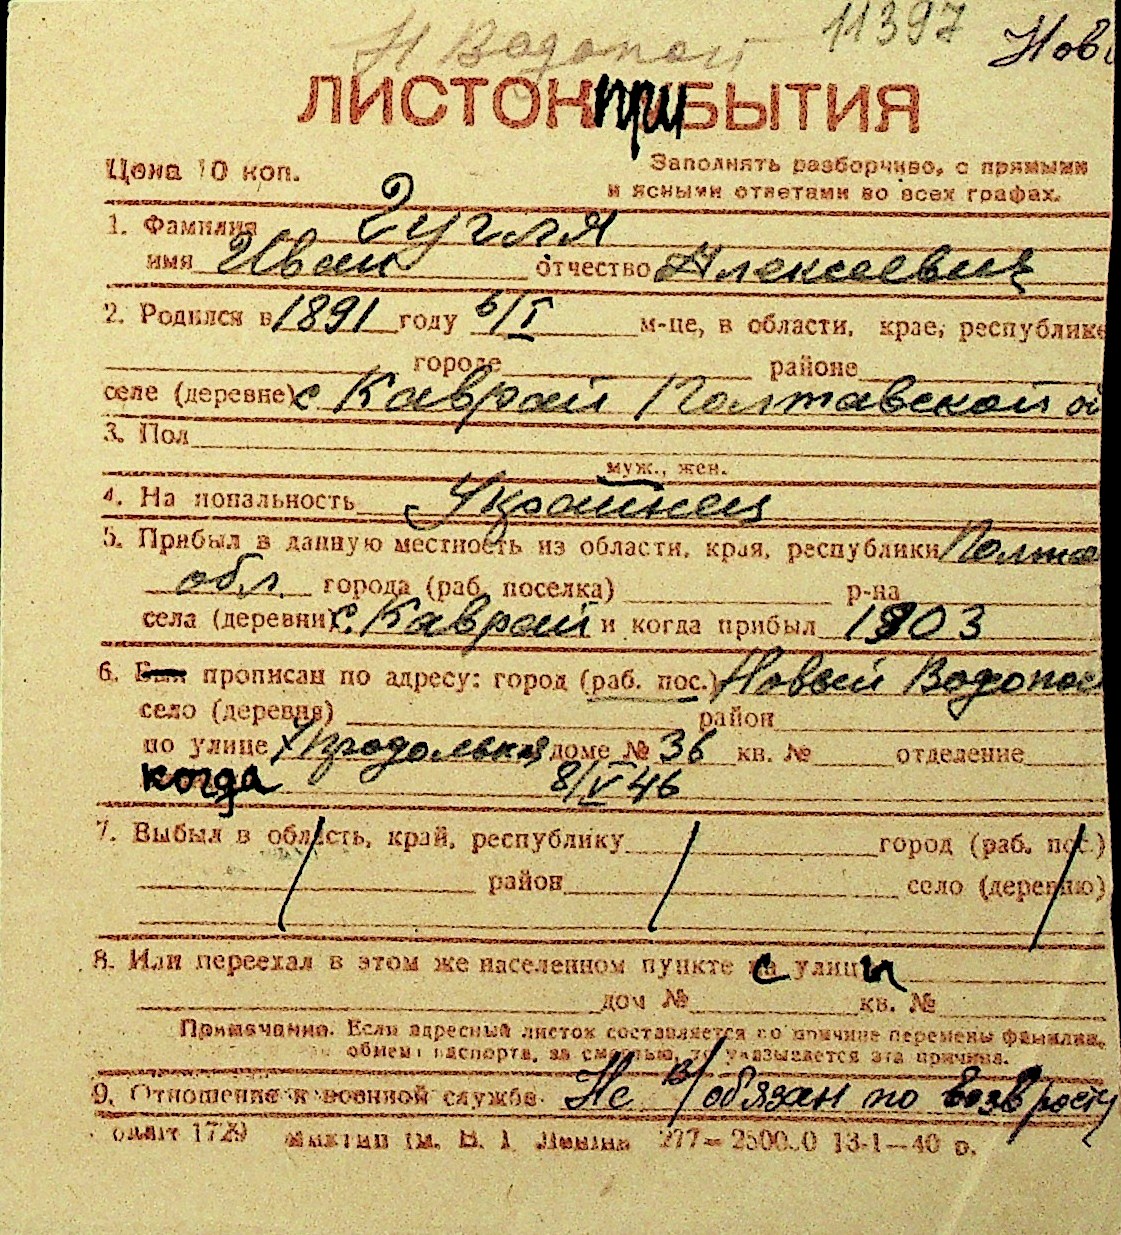 Н Водопой 11397 Нов
ЛИСТОК ПРИБЫТИЯ
Цена 10 коп. Заполнять разборчиво, с прямыми
и ясными ответами во всех графах.
1. Фамилия Гугля
имя Иван отчество Алексеевич
2. Родился в 1891 году 6/I м-це, в области, крае, республике
городе районе
селе (деревне) с Каврай Полтавской о
3. Пол
муж., жен.
4. Национальность Украинец
5. Прибыл в данную местность из области, края, республики Полта
обл. города (раб. поселка) р-на
села (деревни) с. Каврай и когда прибыл 1903
6. Был прописан по адресу: город (раб. пос.) Новый Водопой
село (деревня) район
по улице Продольная доме № 36 кв. № отделение
когда 8/V 46
7. Выбыл в область, край, республику город (раб. пос.)
район село (деревню)
8. Или переехал в этом же населенном пункте с улицы
дом № кв. №
Примечание. Если адресный листок составляется по причине перемены фамилии,
обмена паспорта, за смертью, то указывается эта причина.
9. Отношение к военной службе Не в/обязан по возрасту
1729 им. В. И. Ленина 277— 13-1—40 р.